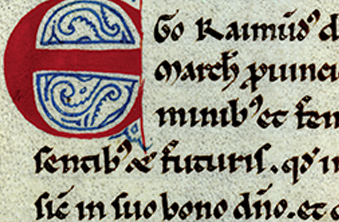 EGo Raimūdꝰ d
March ꝓuinci
minibꝰ et fem
sentibꝰ & futuris. qđ in
sić in suo bono dn̄o. et